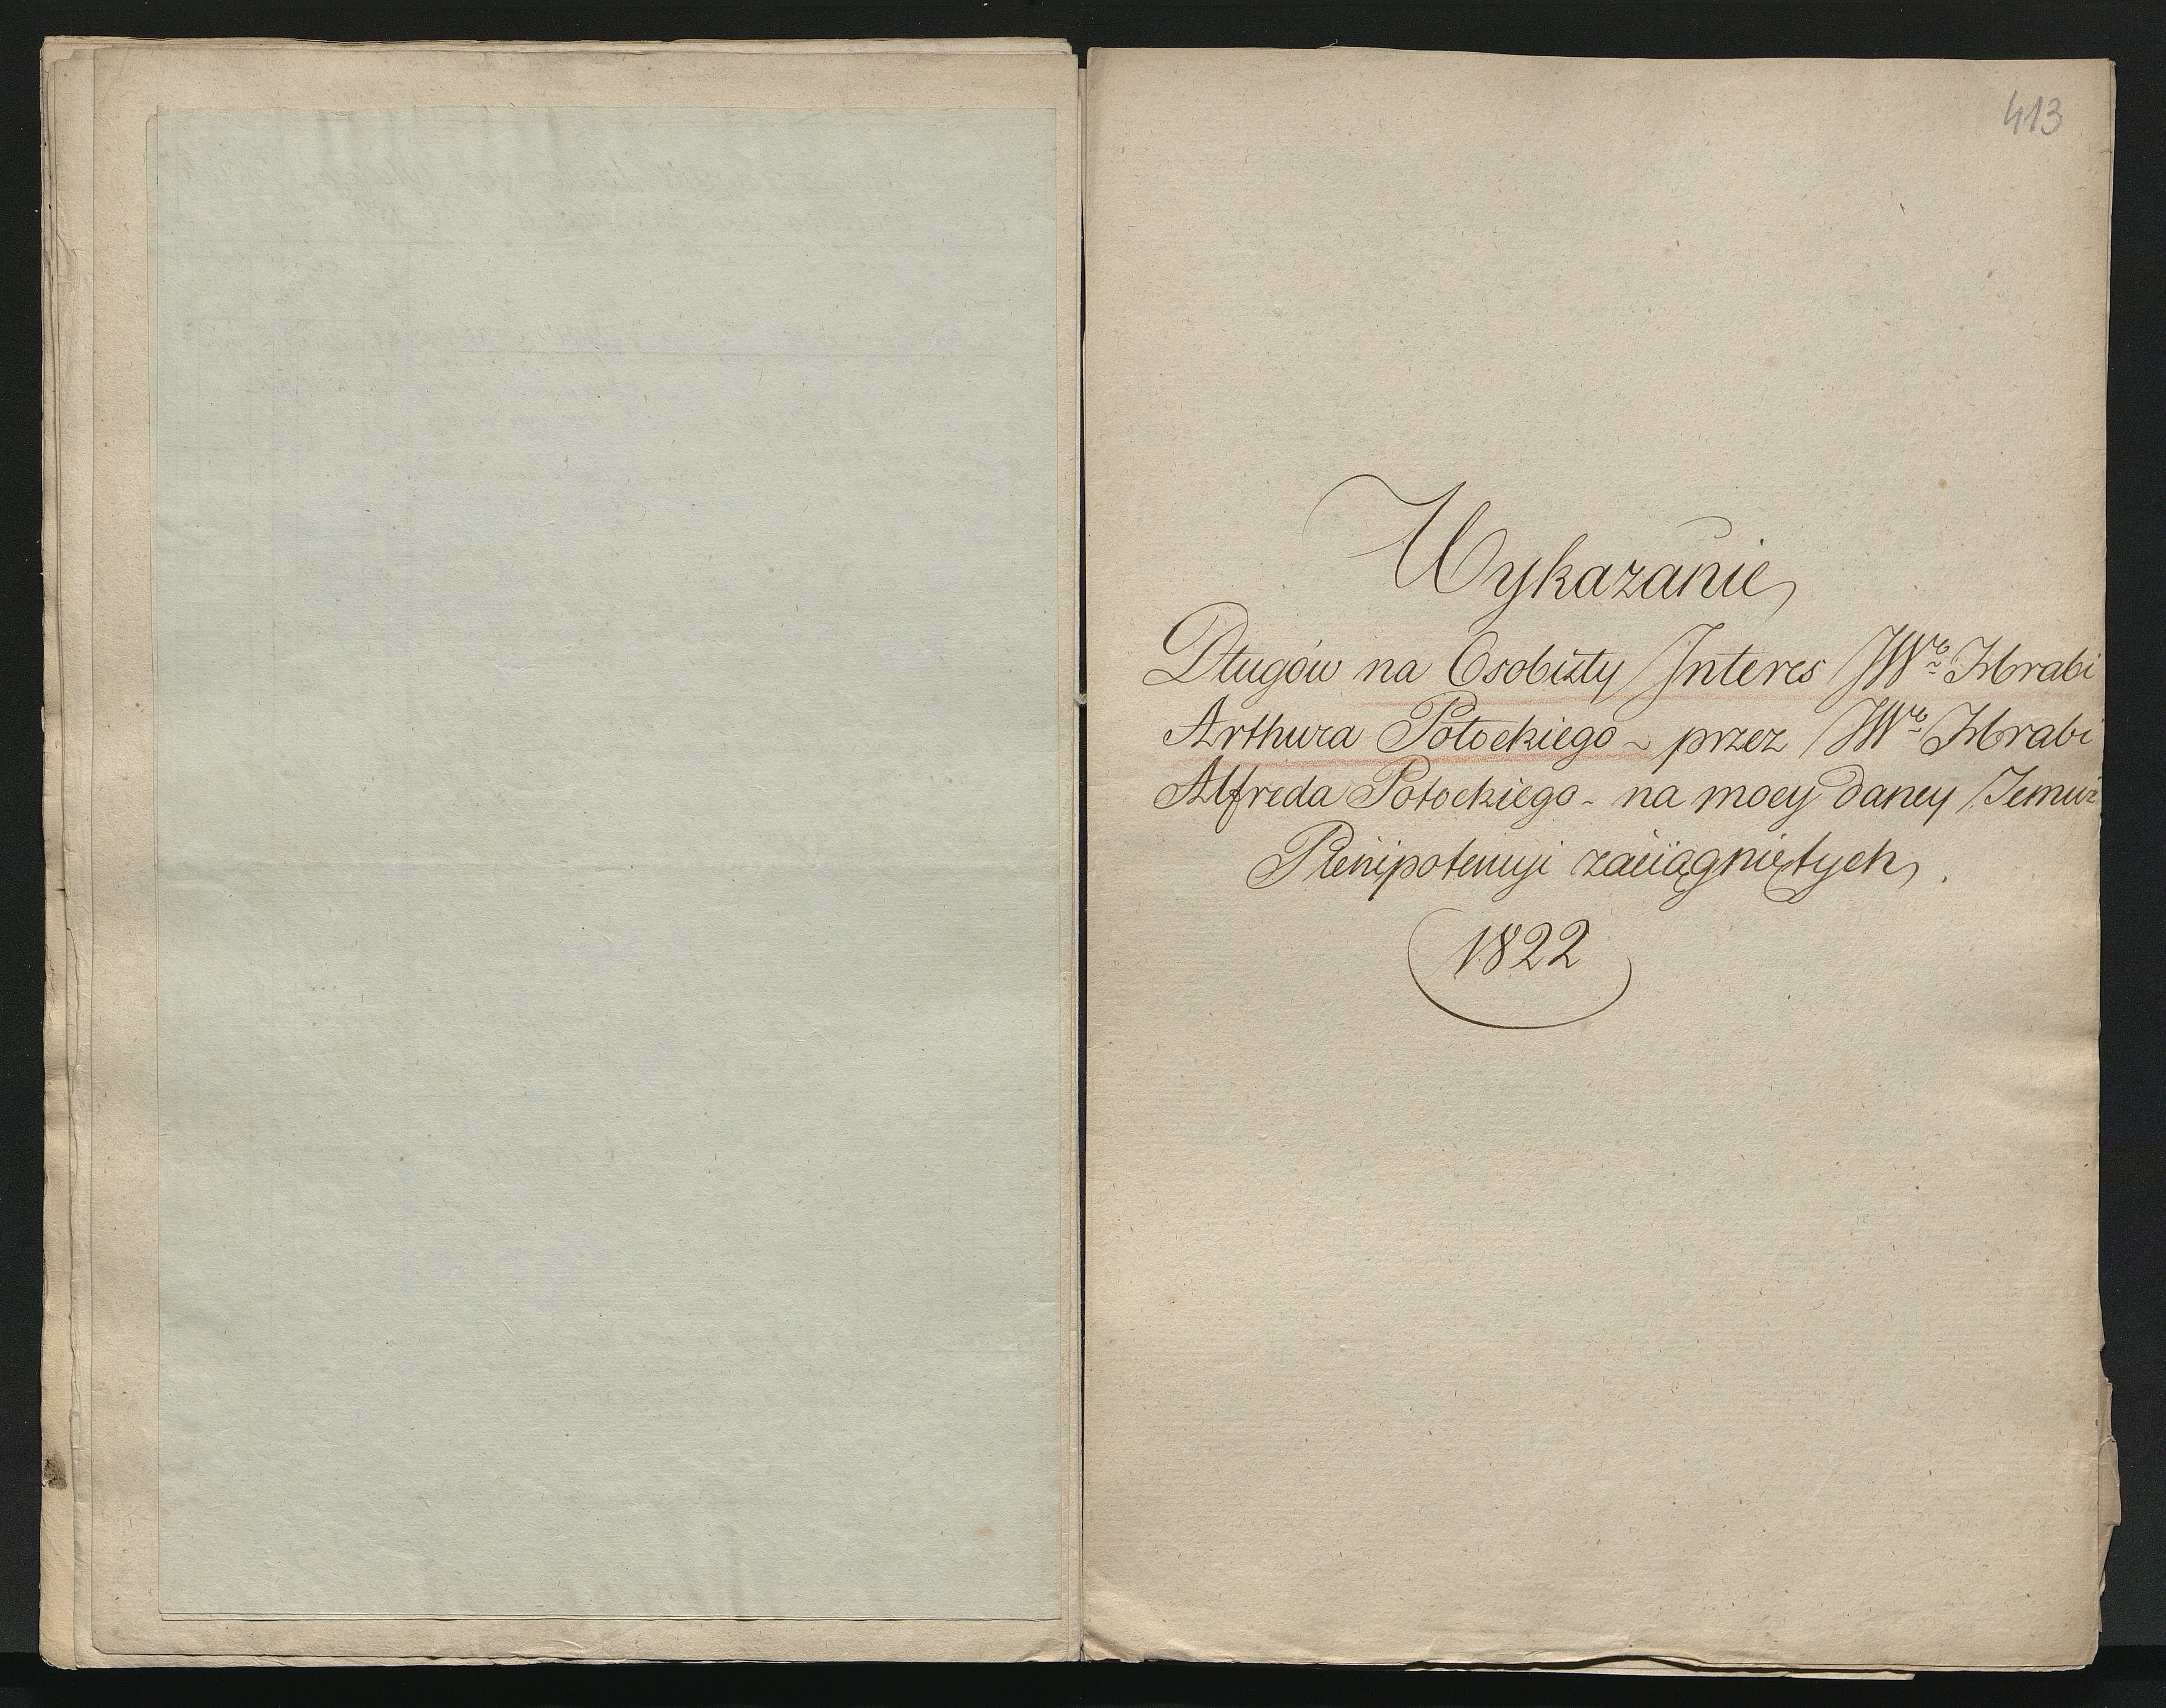 413
Wykazanie
Długów na Osobisty Interes JWo Hrabi
Arthura Potockiego ~ przez JWo Hrabi
Alfreda Potockiego - na mocy daney Jemuż
Plenipotencyi zaciągniętych.
1822